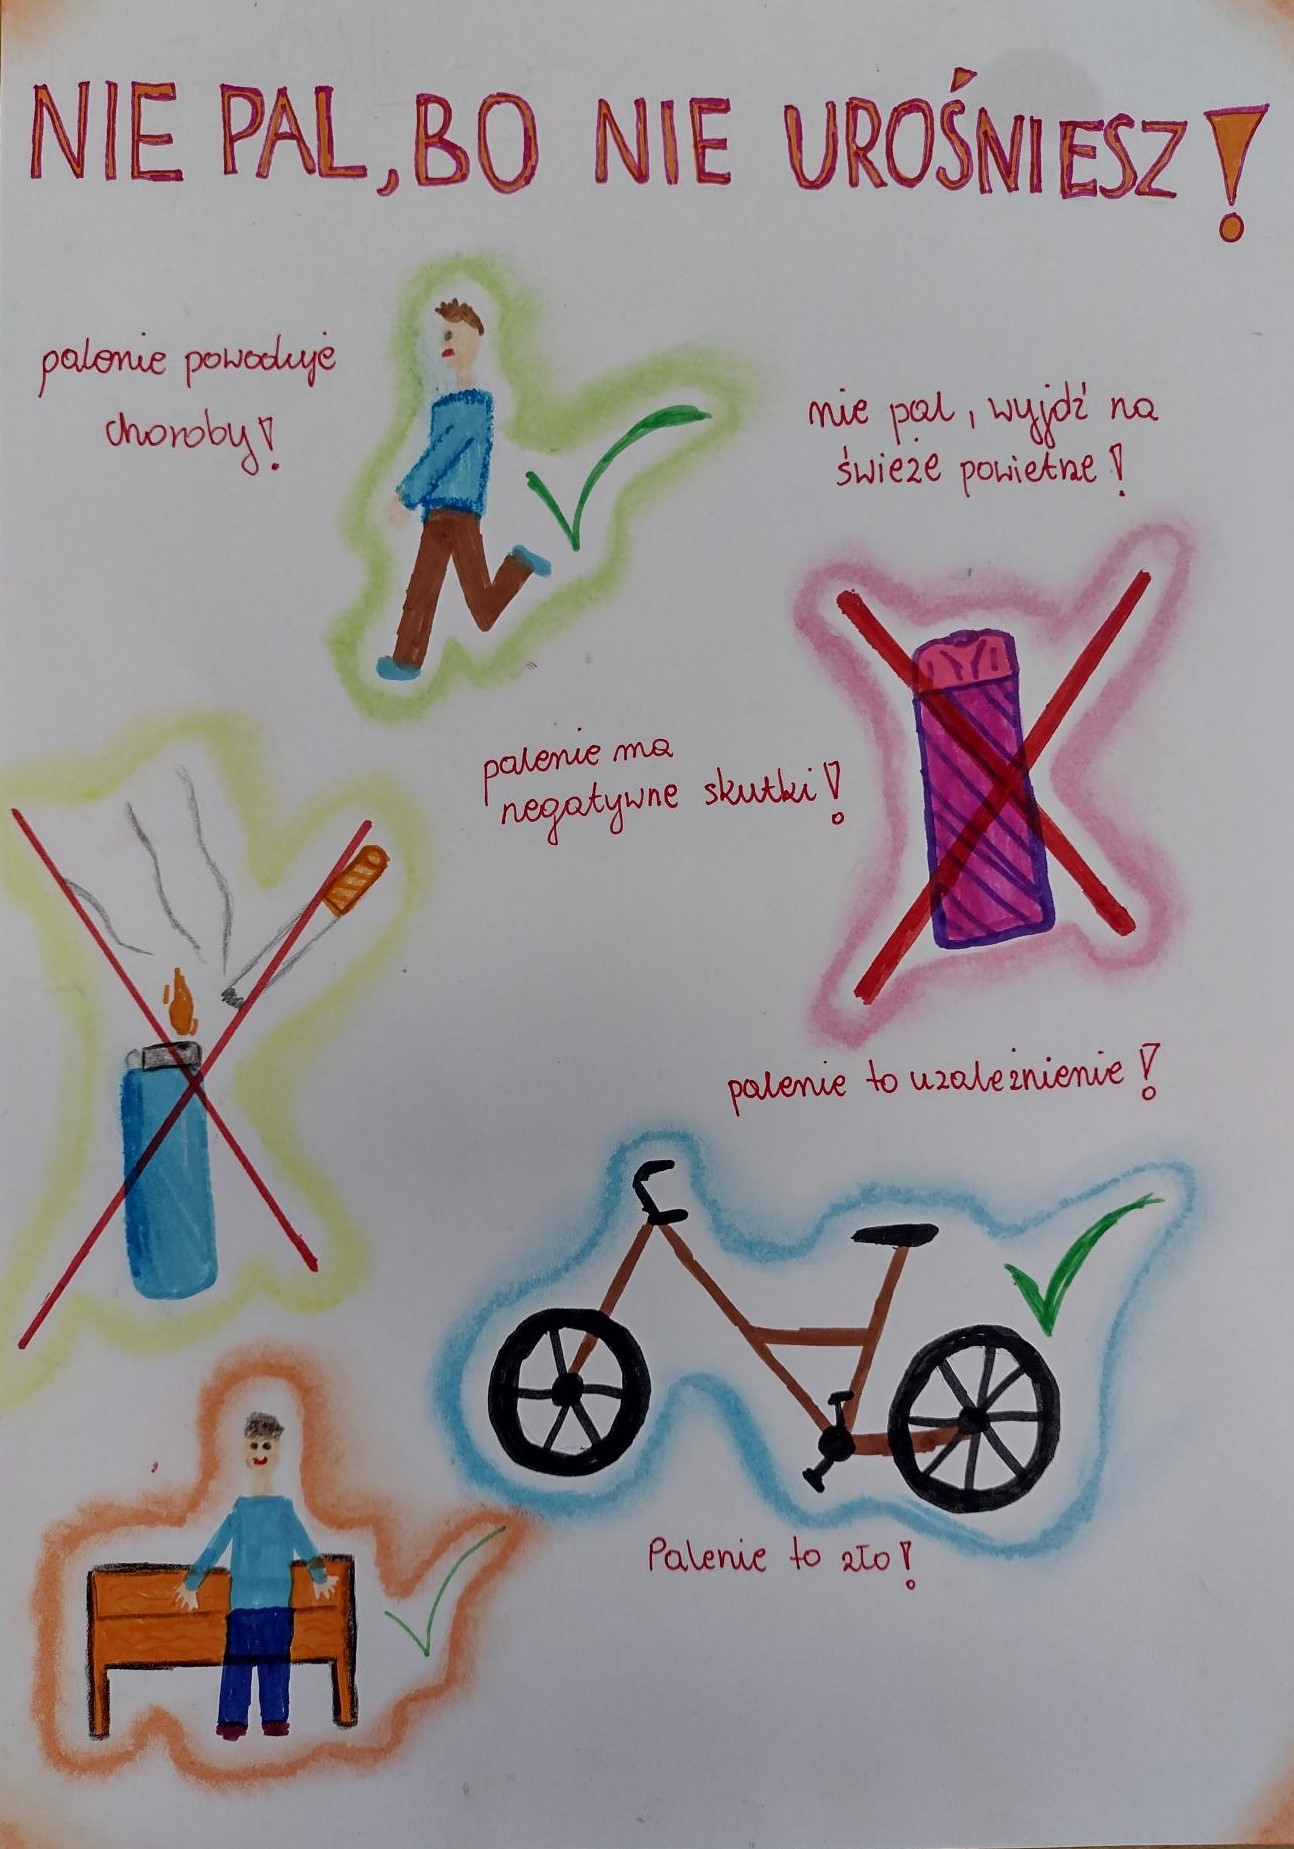 NIE PAL, BO NIE UROŚNIESZ!
palenie powoduje
choroby!
nie pal, wyjdź na
świeże powietrze!
palenie ma
negatywne skutki!
palenie to uzależnienie!
Palenie to zło!